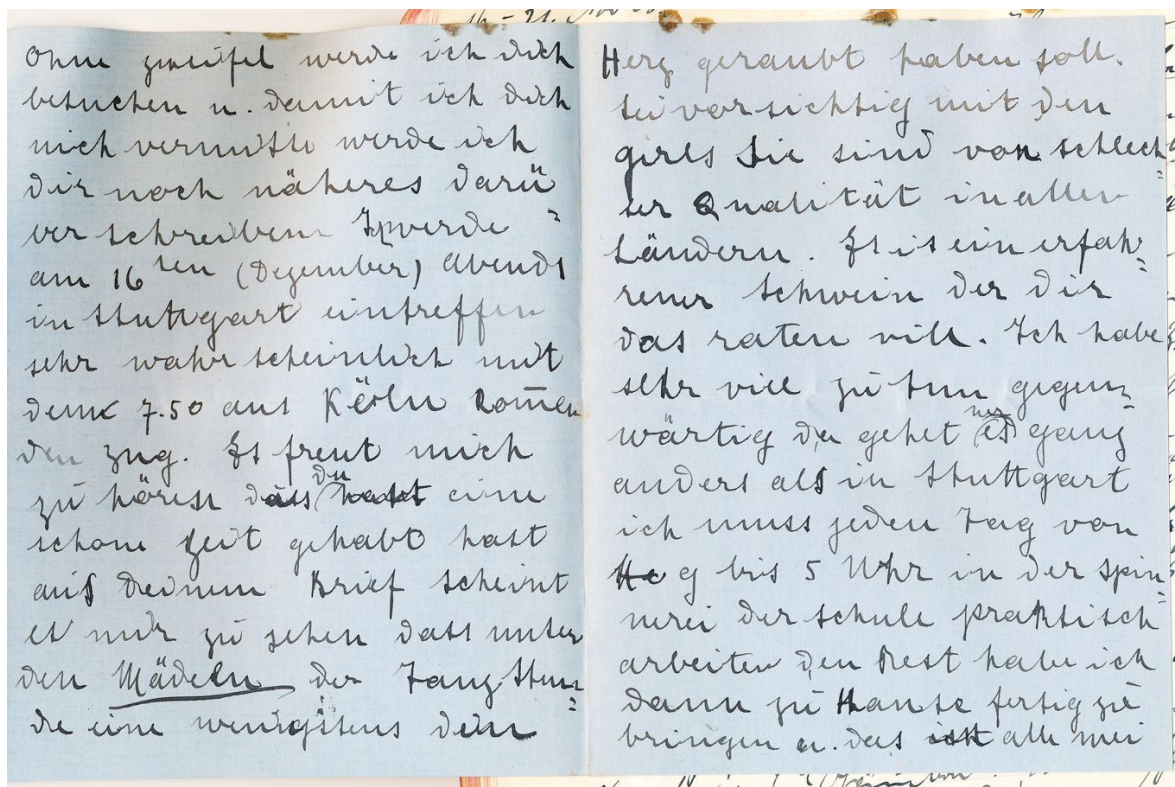 Ohne zweifel werde ich dich
besuchen u. damit ich dich
nich vermisste werde ich
dir noch näheres darü
ber schreiben Ich werde
am 16ten (Dezember) abends
in Stuttgart eintreffen
sehr wahrscheinlich mit
dem 7.50 aus Köeln komen
den zug. Es freut mich
zu hören dass du eine
schöne zeit gehabt hast
aus deinem Brief scheint
es mir zu sehen dass unter
den Mädeln der Tanz Stun=
de eine wenigstens dein
Herz geraubt haben soll.
Sei vorsichtig mit den
girls Sie sind von schlech=
ter Qualität in allen
Ländern. Es ist ein erfah=
rener Schwein der dir
das raten vill. Ich habe
sehr viel zu tun gegen=
wärtig da gehet ganz
anders als in Stuttgart
ich muss jeden Tag von
9 bis 5 Uhr in der spin=
nerei der schule praktisch
arbeiten den Rest habe ich
dann zu Hause fertig zu
bringen u. das alle mei